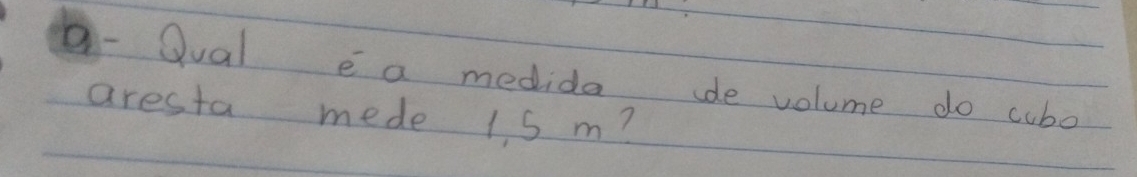 b- Qual é a medida de volume do cubo
aresta mede 1,5 m?